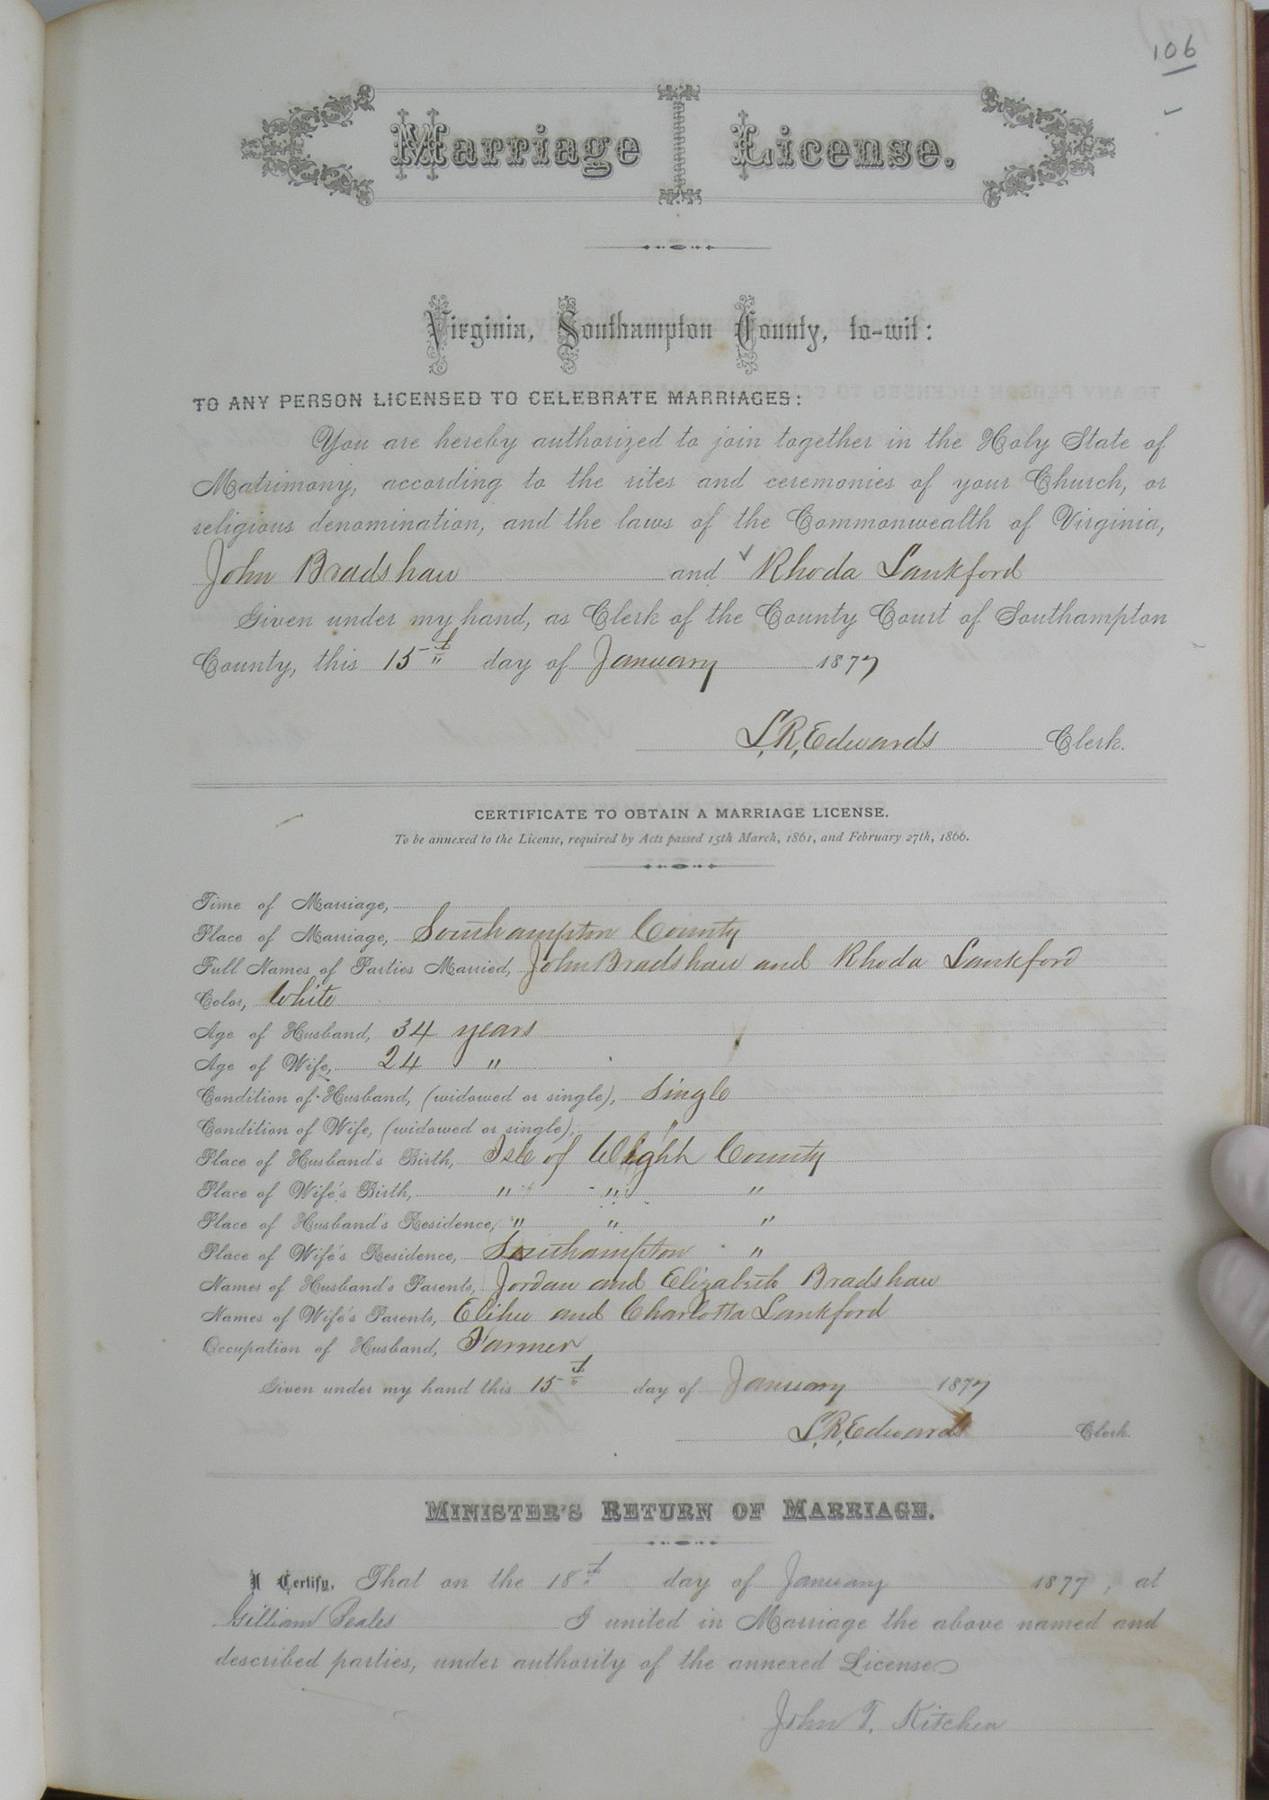 106
Marriage License.
Virginia, Southampton County, to-wit:
TO ANY PERSON LICENSED TO CELEBRATE MARRIAGES:
You are hereby authorized to join together in the Holy State of
Matrimony, according to the rites and ceremonies of your Church, or
religious denomination, and the laws of the Commonwealth of Virginia,
John Bradshaw and Rhoda Lankford
Given under my hand, as Clerk of the County Court of Southampton
County, this 15th day of January 1877
L.R. Edwards Clerk.
CERTIFICATE TO OBTAIN A MARRIAGE LICENSE.
To be annexed to the License, required by Acts passed 15th March, 1861, and February 27th, 1866.
Time of Marriage,
Place of Marriage, Southampton County
Full Names of Parties Married, John Bradshaw and Rhoda Lankford
Color, White
Age of Husband, 34 years
Age of Wife, 24 "
Condition of Husband, (widowed or single), Single
Condition of Wife, (widowed or single),
Place of Husband's Birth, Isle of Wight County
Place of Wife's Birth, " " "
Place of Husband's Residence, " " "
Place of Wife's Residence, Southampton "
Names of Husband's Parents, Jordan and Elizabeth Bradshaw
Names of Wife's Parents, Elihu and Charlotta Lankford
Occupation of Husband, Farmer
Given under my hand this 15th day of January 1877
L.R. Edwards Clerk.
MINISTER'S RETURN OF MARRIAGE.
I Certify, That on the 18th day of January 1877, at
Gilliam Beales I united in Marriage the above named and
described parties, under authority of the annexed License
John T. Kitchen